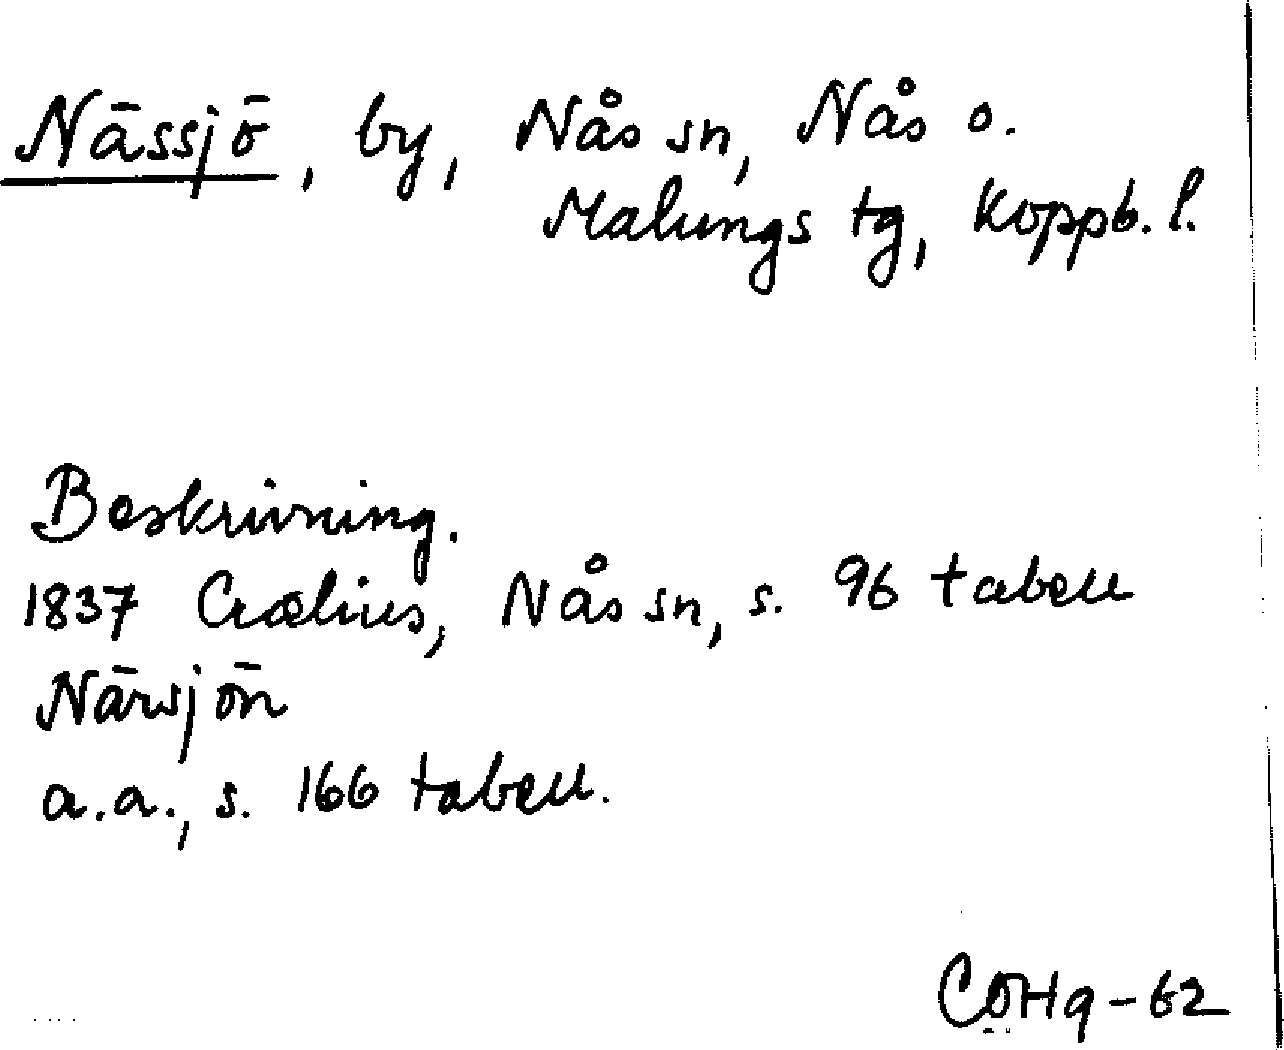 Nässjö, by, Nås sn, Nås o.
Malungs tg, Koppb. l.
Beskrivning.
1837 Crælius, Nås sn, s. 96 tabell
Närsjön
a.a., s. 166 tabell.
CÖHg-62